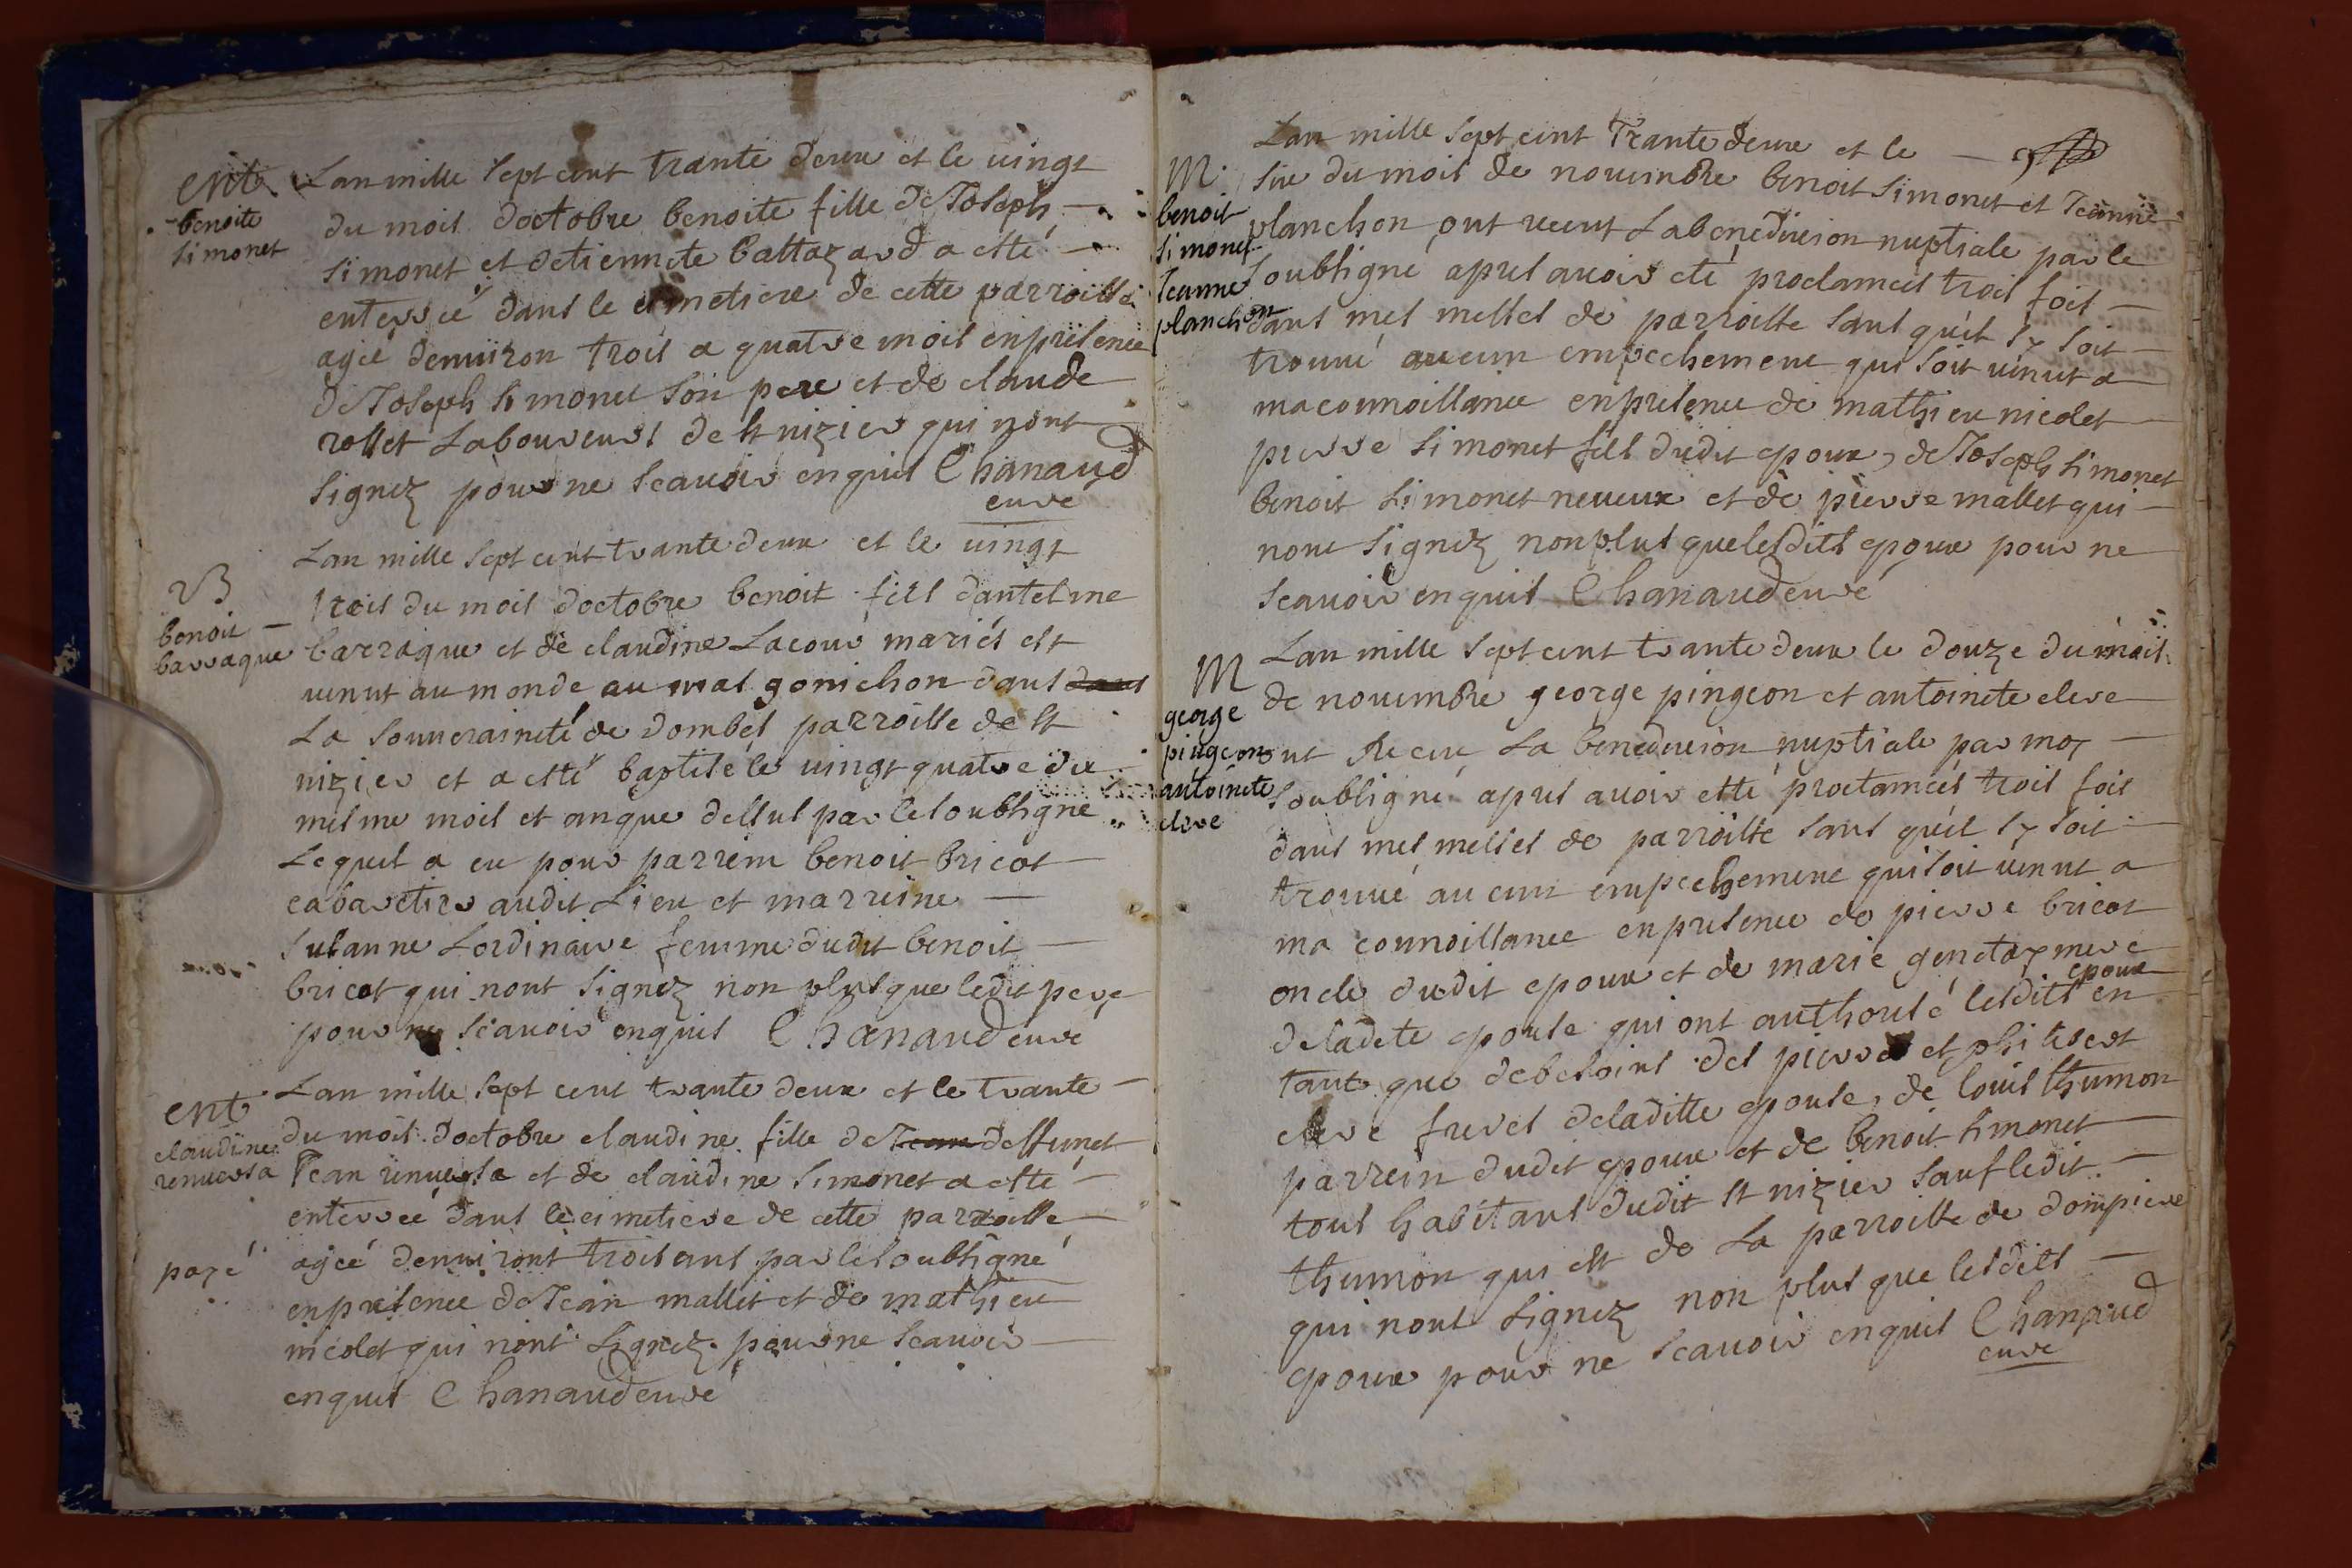 ent
benoite
simonet
Lan mille sept cent trante deux et le vingt
du mois doctobre benoite fille de Joseph
simonet et detiennete baltazard a esté
enterrée dans le cimetiere de cette parroisse
agée denviron trois a quatre mois en présence
de Joseph simonet son pere et de claude
rollet Laboureurs de st nizier qui nont
signez pour ne scavoir enquis Chanaud
curé
B
benoit
barraque
Lan mille sept cent trante deux et le vingt
trois du mois doctobre benoit fils dantelme
barraque et de claudine Lacour mariés est
venut au monde au mas gonichon dans dans
La souveraineté de dombes parroisse de st
nizier et a esté baptisé le vingt quatre du
mesme mois et an que dessus par le soubsigné
Lequel a eu pour parrein benoit bricot
cabaretier audit Lieu et marreine
susanne Lordinaire femme dudit benoit
bricot qui nont signez non plus que ledit pere
pour ne scavoir enquis Chanaud curé
ent
claudine
renversa
payé
Lan mille sept cent trante deux et le trante
du mois doctobre claudine fille de Jean deffunct
Jean renversa et de claudine simonet a esté
enterrée dans le cimetiere de cette parroisse
agée denviront trois ans par le soubsigné
en présence de Jean mallet et de mathieu
nicolet qui nont signez pour ne scavoir
enquis Chanaud curé
M
benoit
simonet
Jeanne
planchon
Lan mille sept cent Trante deux et le
sixe du mois de novembre benoit simonet et Jeanne
planchon ont receut La benediction nuptiale par le
soubsigné apres avoir eté proclamés trois fois
dans mes messes de parroisse sans quil sy soit
trouvé aucun empechement qui soit venut a
ma connoissance en présence de mathieu nicolet
pierre simonet fils dudit epoux, de Joseph simonet
benoit simonet neveux et de pierre mallet qui
nont signez non plus que lesdits epoux pour ne
scavoir enquis Chanaud curé
M
george
pingeon
antoinete
cleve
Lan mille sept cent trante deux le douze du mois
de novembre george pingeon et antoinete cleve
ont Receu La benediction nuptiale par moy
soubsigné apres avoir esté proclamés trois fois
dans mes messes de parroisse sans quil sy soit
trouvé aucun empechement qui soit venut a
ma connoissance en présence de pierre bricot
oncle dudit epoux et de marie genetay mere
de ladite epouse qui ont authorisé lesdits epoux en
tant que de besoins des pierre et philibert
cleve freres de laditte epouse, de louis thumon
parrein dudit epoux et de benoit simonet
tous habitans dudit st nizier sauf ledit
thumon qui est de La parroisse de dompiere
qui nont signez non plus que lesdits
epoux pour ne scavoir enquis Chanaud
curé